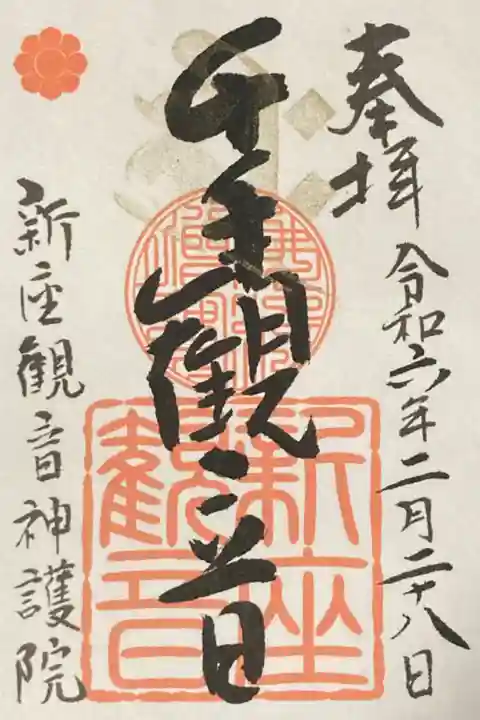 奉拝
令和六年二月二十八日
千手観音
新座観音神護院
新座
観音